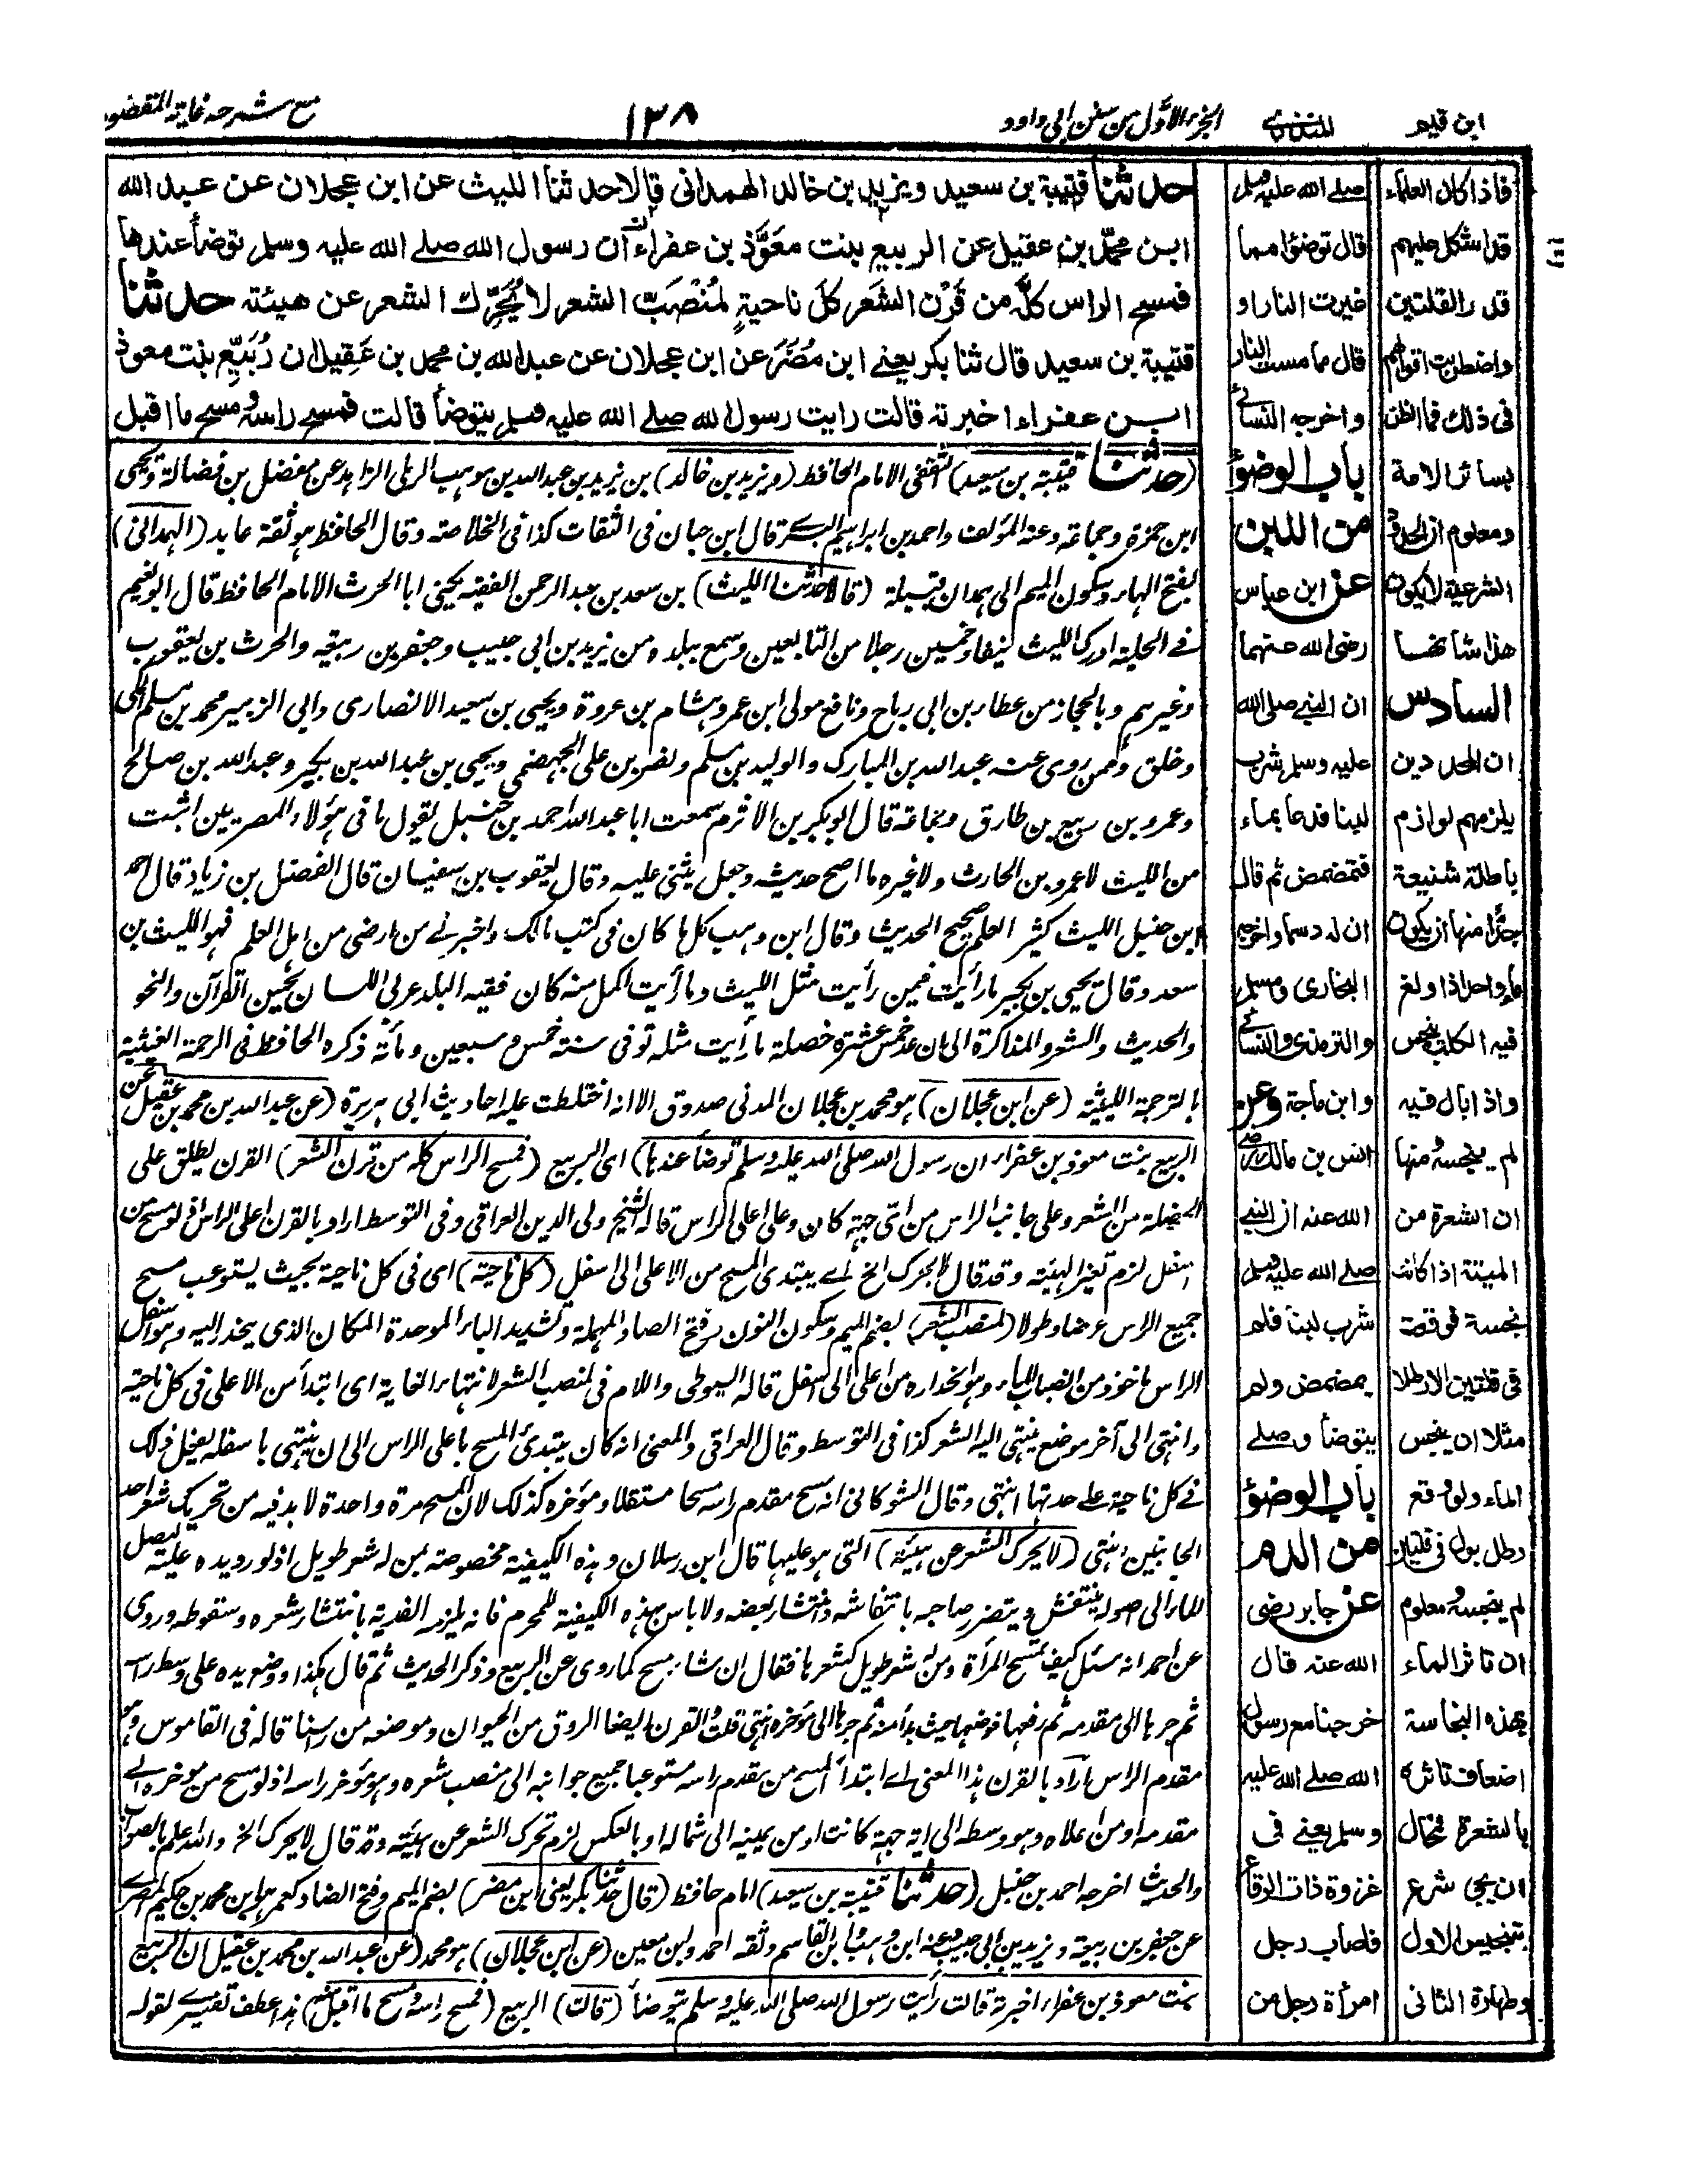 ابن قيم
المنذري
الجزء الاول من سنن ابي داود
١٣٨
مع شرحه غاية المقصود
حدثنا قتيبة بن سعيد ويزيد بن خالد الهمداني قالا حدثنا الليث عن ابن عجلان عن عبد الله
ابن محمد بن عقيل عن الربيع بنت معوذ بن عفراء ان رسول الله صلى الله عليه وسلم توضأ عندها
فمسح الراس كله من قرن الشعر كل ناحية لمنصب الشعر لا يحرك الشعر عن هيئته حدثنا
قتيبة بن سعيد قال ثنا بكر يعني ابن مضر عن ابن عجلان عن عبد الله بن محمد بن عقيل ان ربيع بنت معوذ
ابن عفراء اخبرته قالت رايت رسول الله صلى الله عليه وسلم يتوضأ قالت فمسح راسه ومسح ما اقبل
(حدثنا قتيبة بن سعيد) الثقفي الامام الحافظ (ويزيد بن خالد) بن يزيد بن عبد الله بن موهب الرملي الزاهد عن مفضل بن فضالة ويحيى
ابن حمزة وجماعة وعنه المؤلف واحمد بن ابراهيم البسري قال ابن حبان في الثقات كذا في الخلاصة وقال الحافظ هو ثقة عابد (الهمداني)
بفتح الهاء وسكون الميم الى همدان قبيلة (قالا حدثنا الليث) بن سعد بن عبد الرحمن الفقيه يكنى ابا الحرث الامام الحافظ قال ابو نعيم
في الحلية ادرك الليث نيفا وخمسين رجلا من التابعين وسمع ببلده من يزيد بن ابي حبيب وجعفر بن ربيعة والحرث بن يعقوب
وغيرهم وبالحجاز من عطاء بن ابي رباح ونافع مولى ابن عمر وهشام بن عروة ويحيى بن سعيد الانصاري وابي الزبير محمد بن مسلم المكي
وخلق وممن روى عنه عبد الله بن المبارك والوليد بن مسلم ونصر بن علي الجهضمي ويحيى بن عبد الله بن بكير وعبد الله بن صالح
وعمرو بن ربيع بن طارق وجماعة قال ابو بكر بن الاثرم سمعت ابا عبد الله احمد بن حنبل يقول ما في هؤلاء المصريين اثبت
من الليث لا عمرو بن الحارث ولا غيره ما اصح حديثه وجعل يثني عليه وقال يعقوب بن سفيان قال الفضل بن زياد قال احمد
ابن حنبل الليث كثير العلم صحيح الحديث وقال ابن وهب كل ما كان في كتب مالك واخبرني من ارضى من اهل العلم فهو الليث بن
سعد وقال يحيى بن بكير ما رأيت فيمن رأيت مثل الليث وما رأيت اكمل منه كان فقيه البلد عربي اللسان يحسن القرآن والنحو
والحديث والشعر والمذاكرة الى ان عد خمس عشرة خصلة ما رأيت مثله توفي سنة خمس وسبعين ومأته ذكره الحافظ في الرحمة الغيثية
بالترجمة الليثية (عن ابن عجلان) هو محمد بن عجلان المدني صدوق الا انه اختلطت عليه احاديث ابي هريرة (عن عبد الله بن محمد بن عقيل عن
الربيع بنت معوذ بن عفراء ان رسول الله صلى الله عليه وسلم توضأ عندها) اي الربيع (فمسح الراس كله من قرن الشعر) القرن يطلق على
الخصلة من الشعر وعلى جانب الراس من اي جهة كان وعلى اعلى الراس قاله الشيخ ولي الدين العراقي وفي التوسط اراد بالقرن اعلى الراس اذ لو مسح من
اسفل لزم تغير الهيئة وقد قال لا يحرك الخ اي يبتدئ المسح من الاعلى الى اسفل (كل ناحية) اي في كل ناحية بحيث يستوعب مسح
جميع الراس عرضا وطولا (لمنصب الشعر) بضم الميم وسكون النون وفتح الصاد المهملة وتشديد الباء الموحدة المكان الذي ينحدر اليه وهو اسفل
الراس ماخوذ من انصباب الماء وهو انحداره من اعلى الى اسفل قاله السيوطي واللام في لمنصب الشعر لانتهاء الغاية اي ابتدأ من الاعلى في كل ناحية
وانتهى الى آخر موضع ينتهي اليه الشعر كذا في التوسط وقال العراقي والمعنى انه كان يبتدئ المسح باعلى الراس الى ان ينتهي باسفله يفعل ذلك
في كل ناحية على حدتها انتهى وقال الشوكاني انه مسح مقدم راسه مسحا مستقلا ومؤخره كذلك لان المسح مرة واحدة لا بد فيه من تحريك شعر احد
الجانبين انتهى (لا يحرك الشعر عن هيئته) التي هو عليها قال ابن رسلان وهذه الكيفية مخصوصة بمن له شعر طويل اذ لو رد يده عليه ليصل
الماء الى اصوله ينتفش ويتضرر صاحبه بانتفاشه وانتشار بعضه ولا باس بهذه الكيفية للمحرم فانه يلزمه الفدية بانتشار شعره وسقوطه وروي
عن احمد انه سئل كيف تمسح المرأة ومن له شعر طويل كشعرها فقال ان شاء مسح كما روي عن الربيع وذكر الحديث ثم قال هكذا ووضع يده على وسط راسه
ثم جرها الى مقدمه ثم رفعها فوضعها حيث بدأ منه ثم جرها الى مؤخره انتهى قلت والقرن ايضا الروق من الحيوان وموضعه من رأسنا قاله في القاموس وهو
مقدم الراس اراد بالقرن هذا المعنى اي ابتدأ المسح من مقدم راسه مستوعبا جميع جوانبه الى منصب شعره وهو مؤخر راسه اذ لو مسح من مؤخره الى
مقدمه او من اعلاه وهو وسطه الى اية جهة كانت او من يمينه الى شماله او بالعكس لزم تحرك الشعر عن هيئته وقد قال لا يحرك الخ والله اعلم بالصواب
والحديث اخرجه احمد بن حنبل (حدثنا قتيبة بن سعيد) امام حافظ (قال حدثنا بكر يعني ابن مضر) بضم الميم وفتح الضاد كعمر هو ابن محمد بن حكيم المصري
عن جعفر بن ربيعة ويزيد بن ابي حبيب وعنه ابن وهب وابن القاسم وثقه احمد وابن معين (عن ابن عجلان) هو محمد (عن عبد الله بن محمد بن عقيل ان الربيع
بنت معوذ بن عفراء اخبرته قالت رأيت رسول الله صلى الله عليه وسلم يتوضأ (قالت) الربيع (فمسح راسه ومسح ما اقبل منه) هذا عطف تفسيري لقوله
صلى الله عليه وسلم
قال توضؤا مما
غيرت النار او
قال مما مست النار
واخرجه النسائي
باب الوضوء
من اللبن
عن ابن عباس
رضي الله عنهما
ان النبي صلى الله
عليه وسلم شرب
لبنا فدعا بماء
فتمضمض ثم قال
ان له دسما واخرجه
البخاري ومسلم
والترمذي والنسائي
وابن ماجة وعن
انس بن مالك رضي
الله عنه ان النبي
صلى الله عليه وسلم
شرب لبنا فلم
يمضمض ولم
يتوضأ وصلى
باب الوضوء
من الدم
عن جابر رضي
الله عنه قال
خرجنا مع رسول
الله صلى الله عليه
وسلم يعني في
غزوة ذات الرقاع
فاصاب رجل
امرأة رجل من
فاذا كان العلماء
قد اشكل عليهم
قدر القلتين
واضطربت اقوالهم
في ذلك فما الظن
بسائر الامة
ومعلوم ان الحدود
الشرعية لا يكون
هذا شانها
السادس
ان المحددين
يلزمهم لوازم
باطلة شنيعة
جدا منها ان يكون
ماء واحد اذا ولغ
فيه الكلب نجس
واذا بال فيه
لم ينجسه ومنها
ان الشعرة من
الميتة اذا كانت
نجسة فوقعت
في قلتين الا رطلا
مثلا ان ينجس
الماء ولو وقع
رطل بول في قلتين
لم ينجسه ومعلوم
ان تاثر الماء
بهذه النجاسة
اضعاف تاثره
بالشعرة فمحال
ان يجي شرع
بتنجيس الاول
وطهارة الثاني